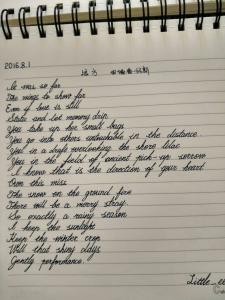 2016.8.1
远方
It was so far
The wings to show far
Even if love is still
State and Lot memory drip
You take up her small bags
You go into others untouchable in the distance
You in a dyfe overlooking the shore lilac
You in the field of ancient pick-up sorrow
I know that is the direction of your heart
Over this miss
The snow on the ground fire
There will be a merry stray
So exactly a rainy season
I keep the sunlight
Keep the winter crop
Will that shiny days
Gently performance.
Little